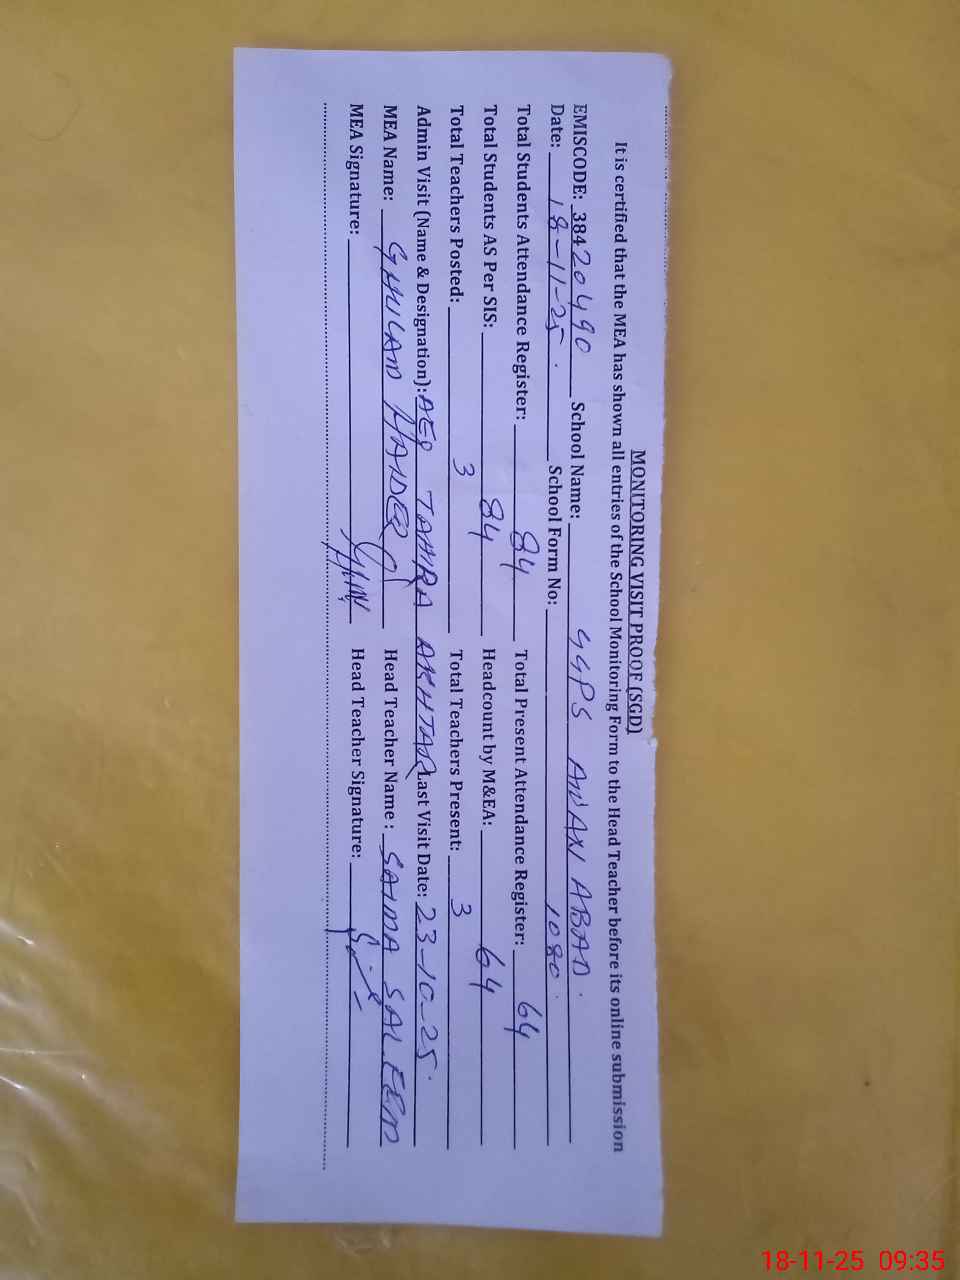 MONITORING VISIT PROOF (SGD)
It is certified that the MEA has shown all entries of the School Monitoring Form to the Head Teacher before its online submission
EMISCODE: 38420490 School Name: GGPS AMAN ABAD.
Date: 18-11-25. School Form No: 1080.
Total Students Attendance Register: 84 Total Present Attendance Register: 64
Total Students AS Per SIS: 84 Headcount by M&EA: 64
Total Teachers Posted: 3 Total Teachers Present: 3
Admin Visit (Name & Designation): AEO TAHIRA AKHTAR Last Visit Date: 23-10-25.
MEA Name: GHULAM HAIDER Head Teacher Name : SAIMA SALEEM
MEA Signature: Head Teacher Signature:
18-11-25 09:35